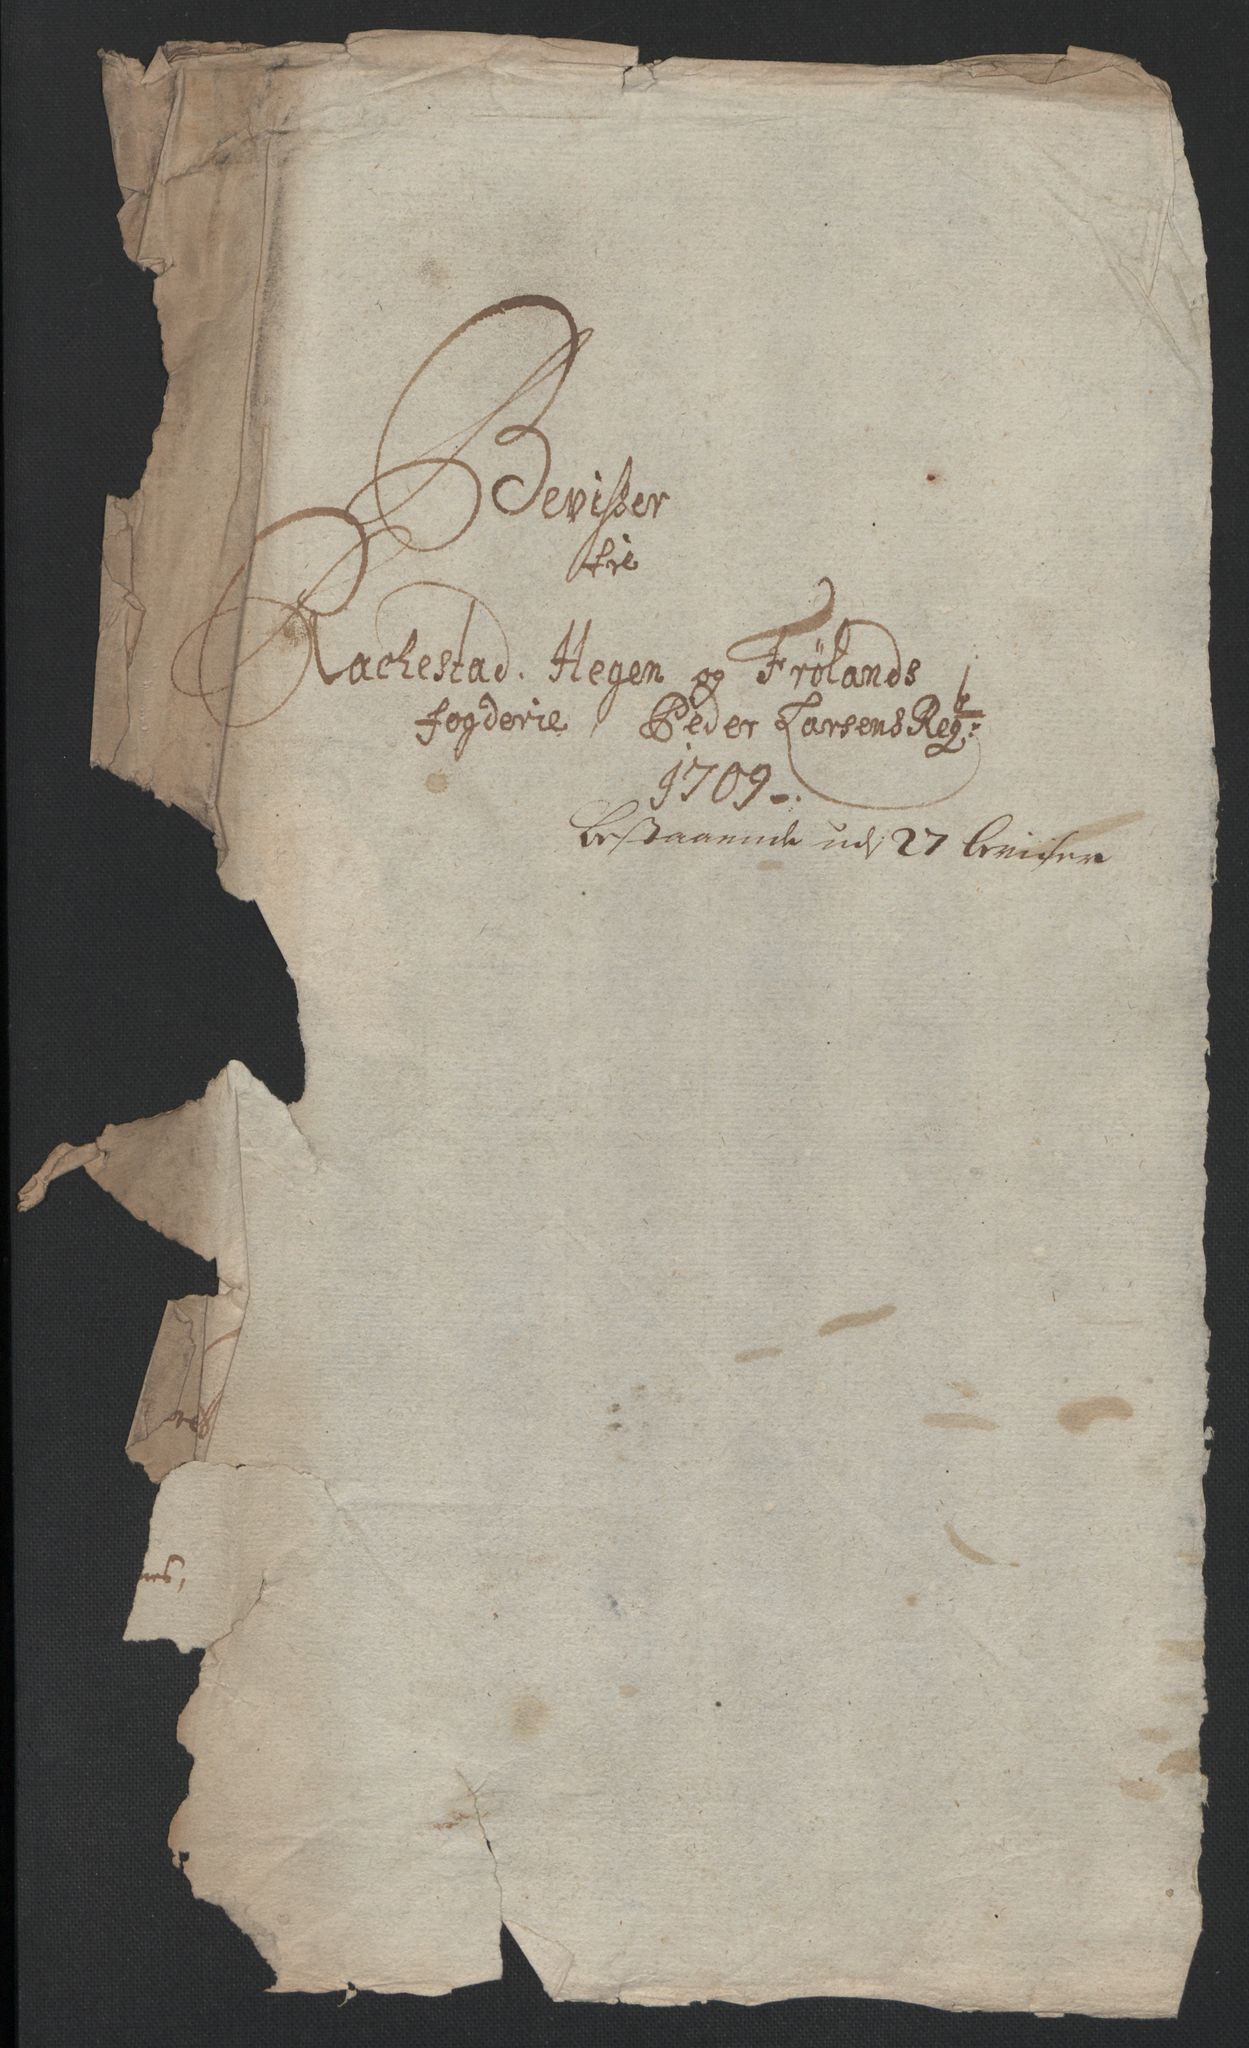 Bevißer
til
Rackestad. Hegen og Frølands
fogderie Peder Larsens Regt:
1709.
bestaaende udj 27 beviser